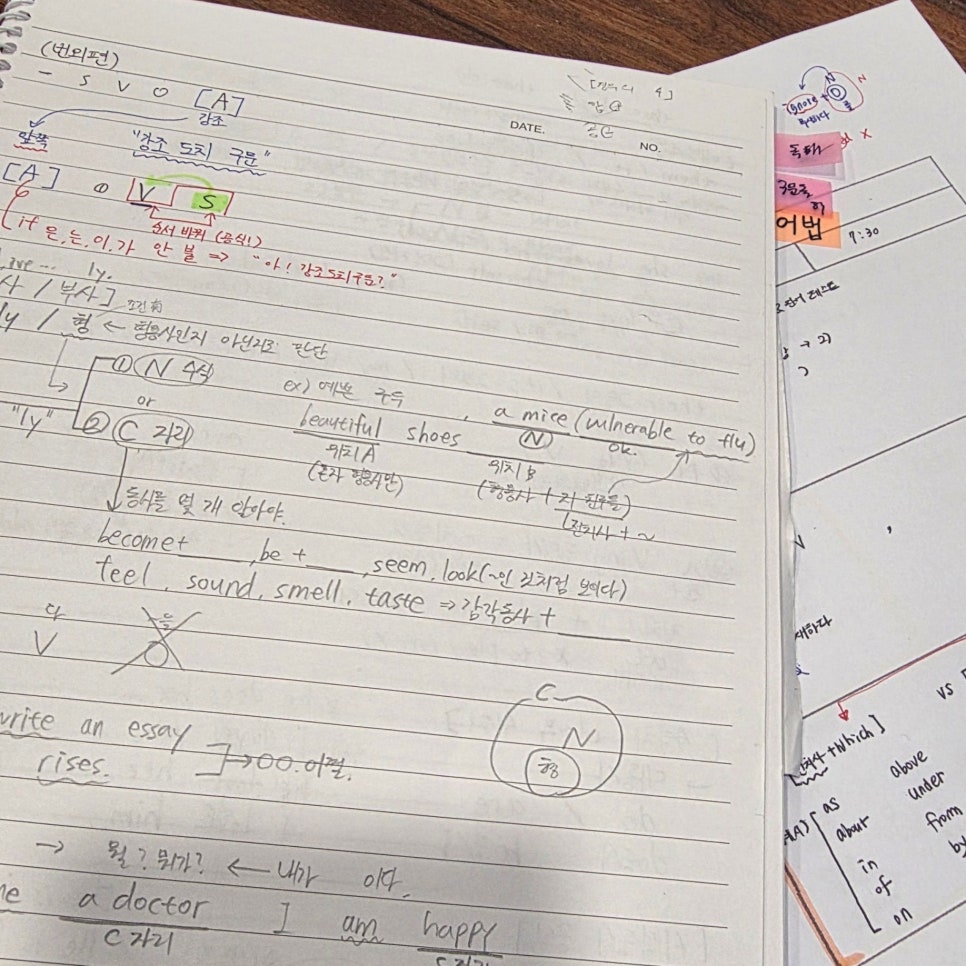 (번외편)
- S V O [A]
강조
앞쪽 "강조 도치 구문"
[A] V S
순서 바뀌 (공식!)
if 은, 는, 이, 가 안 붙 ⇒ "아! 강조도치구문?"
ly.
사 / 부사]
ly / 형 ← 형용사인지 아닌지로 판단
① N 수식
or
② C 자리
"ly"
ex) 예쁜 구두
beautiful shoes, a mice (vulnerable to flu)
위치A (N) ok.
(혼자 형용사만) 위치B
(형용사 + 지 친구들)
전치사 + ~
동사를 몇 개 알아야.
become + ___, be + ___, seem, look (~인 것처럼 보이다)
feel, sound, smell, taste ⇒ 감각동사 + ___
다 을
V O
write an essay
rises. ]→ OO. 어쩔.
C
N
형
→ 뭘? 뭐가? ← 내가 이다.
a doctor I am happy
C자리 C자리
DATE.
NO.
N
ignore + O
독해
구문독해
어법
7:30
단어 테스트
V
VS
[전치사 + which]
as above
about under
in from
of by
on